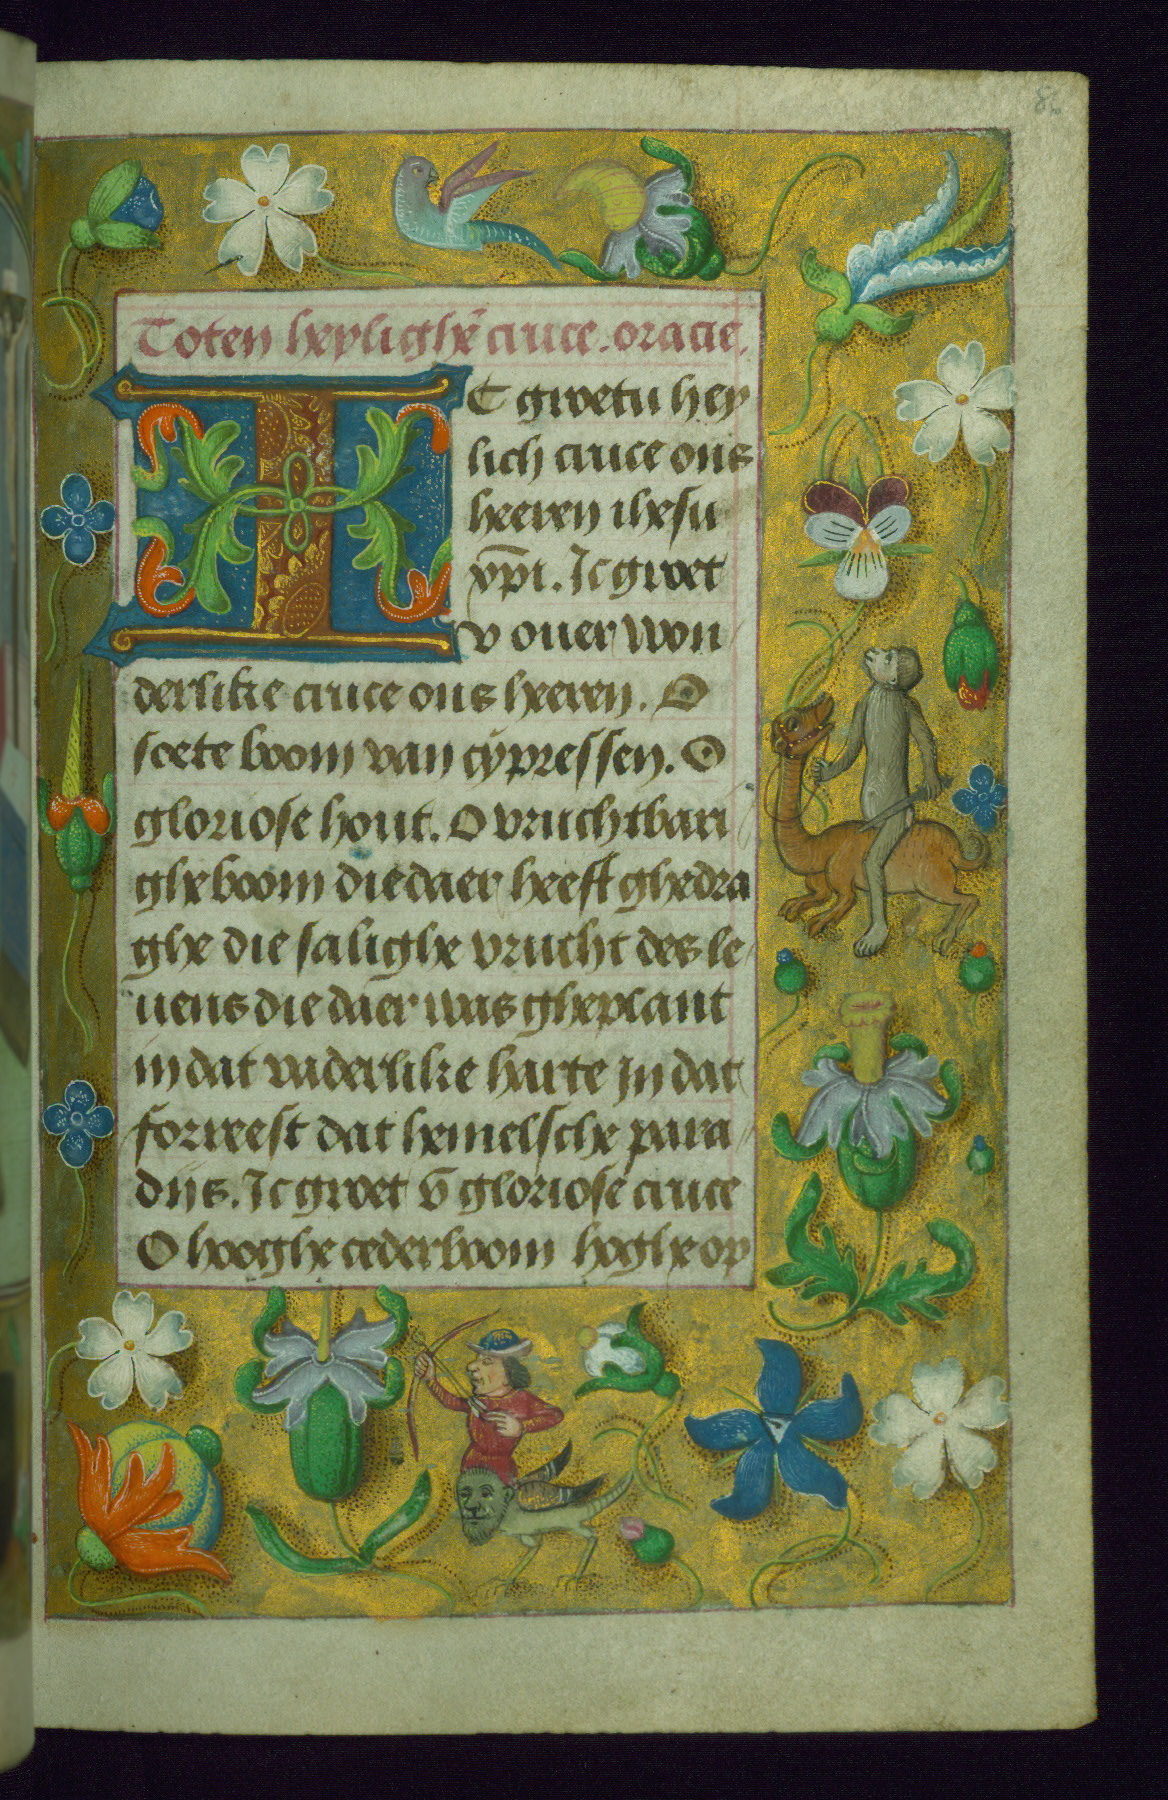 86
Toten heylighē cruce. oracie.
IC groetu hey
lich cruce ons
heeren ihesu
xp̄i. Ic groet
v ouer won
derlike cruce ons heeren. O
soete boom van cypressen. O
gloriose hout. O vruchtbari
ghe boom die daer heeft ghedra
ghe die salighe vrucht des le
uens die daer was gheplant
in dat vaderlike harte In dat
forreest dat hemelsche para
dijs. Ic groet v̄ gloriose cruce
O hooghe cederboom hoghe op